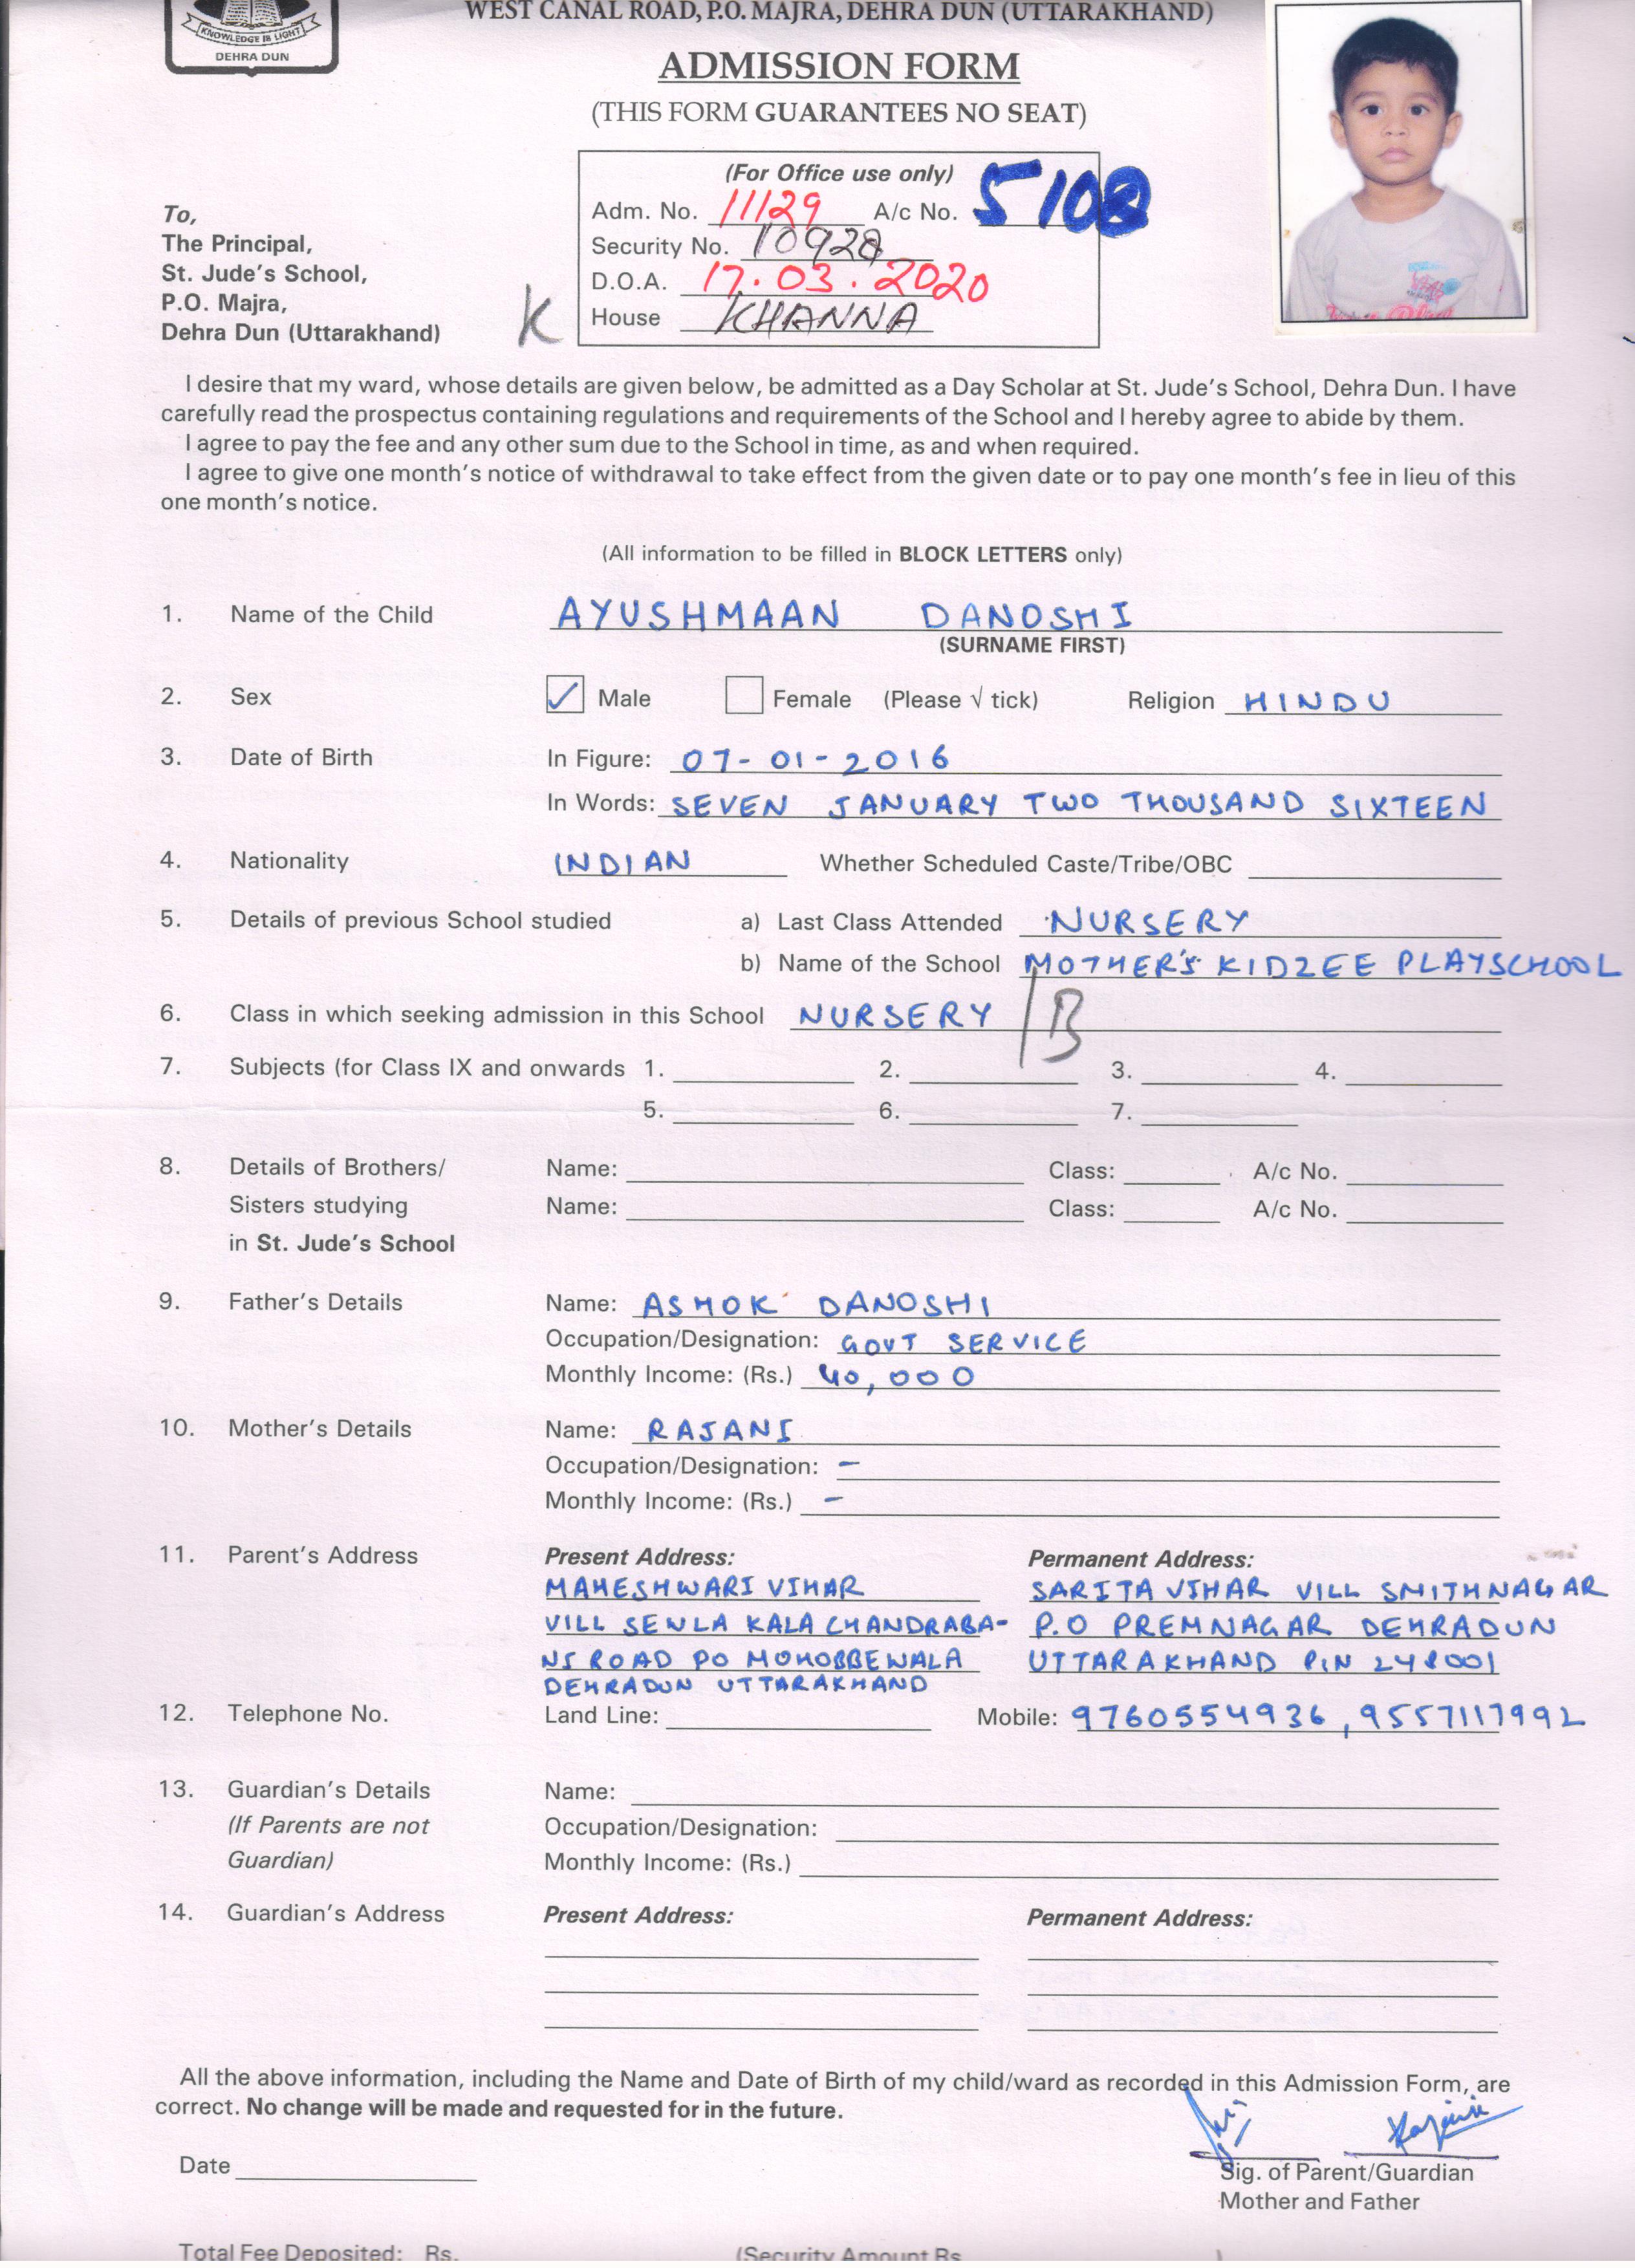 KNOWLEDGE IS LIGHT
DEHRA DUN
WEST CANAL ROAD, P.O. MAJRA, DEHRA DUN (UTTARAKHAND)
ADMISSION FORM
(THIS FORM GUARANTEES NO SEAT)
(For Office use only)
Adm. No. 11129 A/c No. 5108
Security No. 10928
D.O.A. 17.03.2020
House KHANNA
K
To,
The Principal,
St. Jude's School,
P.O. Majra,
Dehra Dun (Uttarakhand)
I desire that my ward, whose details are given below, be admitted as a Day Scholar at St. Jude's School, Dehra Dun. I have
carefully read the prospectus containing regulations and requirements of the School and I hereby agree to abide by them.
I agree to pay the fee and any other sum due to the School in time, as and when required.
I agree to give one month's notice of withdrawal to take effect from the given date or to pay one month's fee in lieu of this
one month's notice.
(All information to be filled in BLOCK LETTERS only)
1. Name of the Child AYUSHMAAN DANOSHI
(SURNAME FIRST)
2. Sex ✓ Male Female (Please √ tick) Religion HINDU
3. Date of Birth In Figure: 07-01-2016
In Words: SEVEN JANUARY TWO THOUSAND SIXTEEN
4. Nationality INDIAN Whether Scheduled Caste/Tribe/OBC
5. Details of previous School studied a) Last Class Attended NURSERY
b) Name of the School MOTHER'S KIDZEE PLAYSCHOOL
6. Class in which seeking admission in this School NURSERY / B
7. Subjects (for Class IX and onwards 1. 2. 3. 4.
5. 6. 7.
8. Details of Brothers/ Name: Class: A/c No.
Sisters studying Name: Class: A/c No.
in St. Jude's School
9. Father's Details Name: ASHOK DANOSHI
Occupation/Designation: GOVT SERVICE
Monthly Income: (Rs.) 40,000
10. Mother's Details Name: RAJANI
Occupation/Designation: –
Monthly Income: (Rs.) –
11. Parent's Address Present Address: Permanent Address:
MAHESHWARI VIHAR SARITA VIHAR VILL SMITHNAGAR
VILL SEWLA KALA CHANDRABA- P.O PREMNAGAR DEHRADUN
NI ROAD PO MOHOBBEWALA UTTARAKHAND PIN 248001
DEHRADUN UTTARAKHAND
12. Telephone No. Land Line: Mobile: 9760554936, 9557117992
13. Guardian's Details Name:
(If Parents are not Occupation/Designation:
Guardian) Monthly Income: (Rs.)
14. Guardian's Address Present Address: Permanent Address:
All the above information, including the Name and Date of Birth of my child/ward as recorded in this Admission Form, are
correct. No change will be made and requested for in the future.
Date
Rajani
Sig. of Parent/Guardian
Mother and Father
Total Fee Deposited: Rs. (Security Amount Rs. )